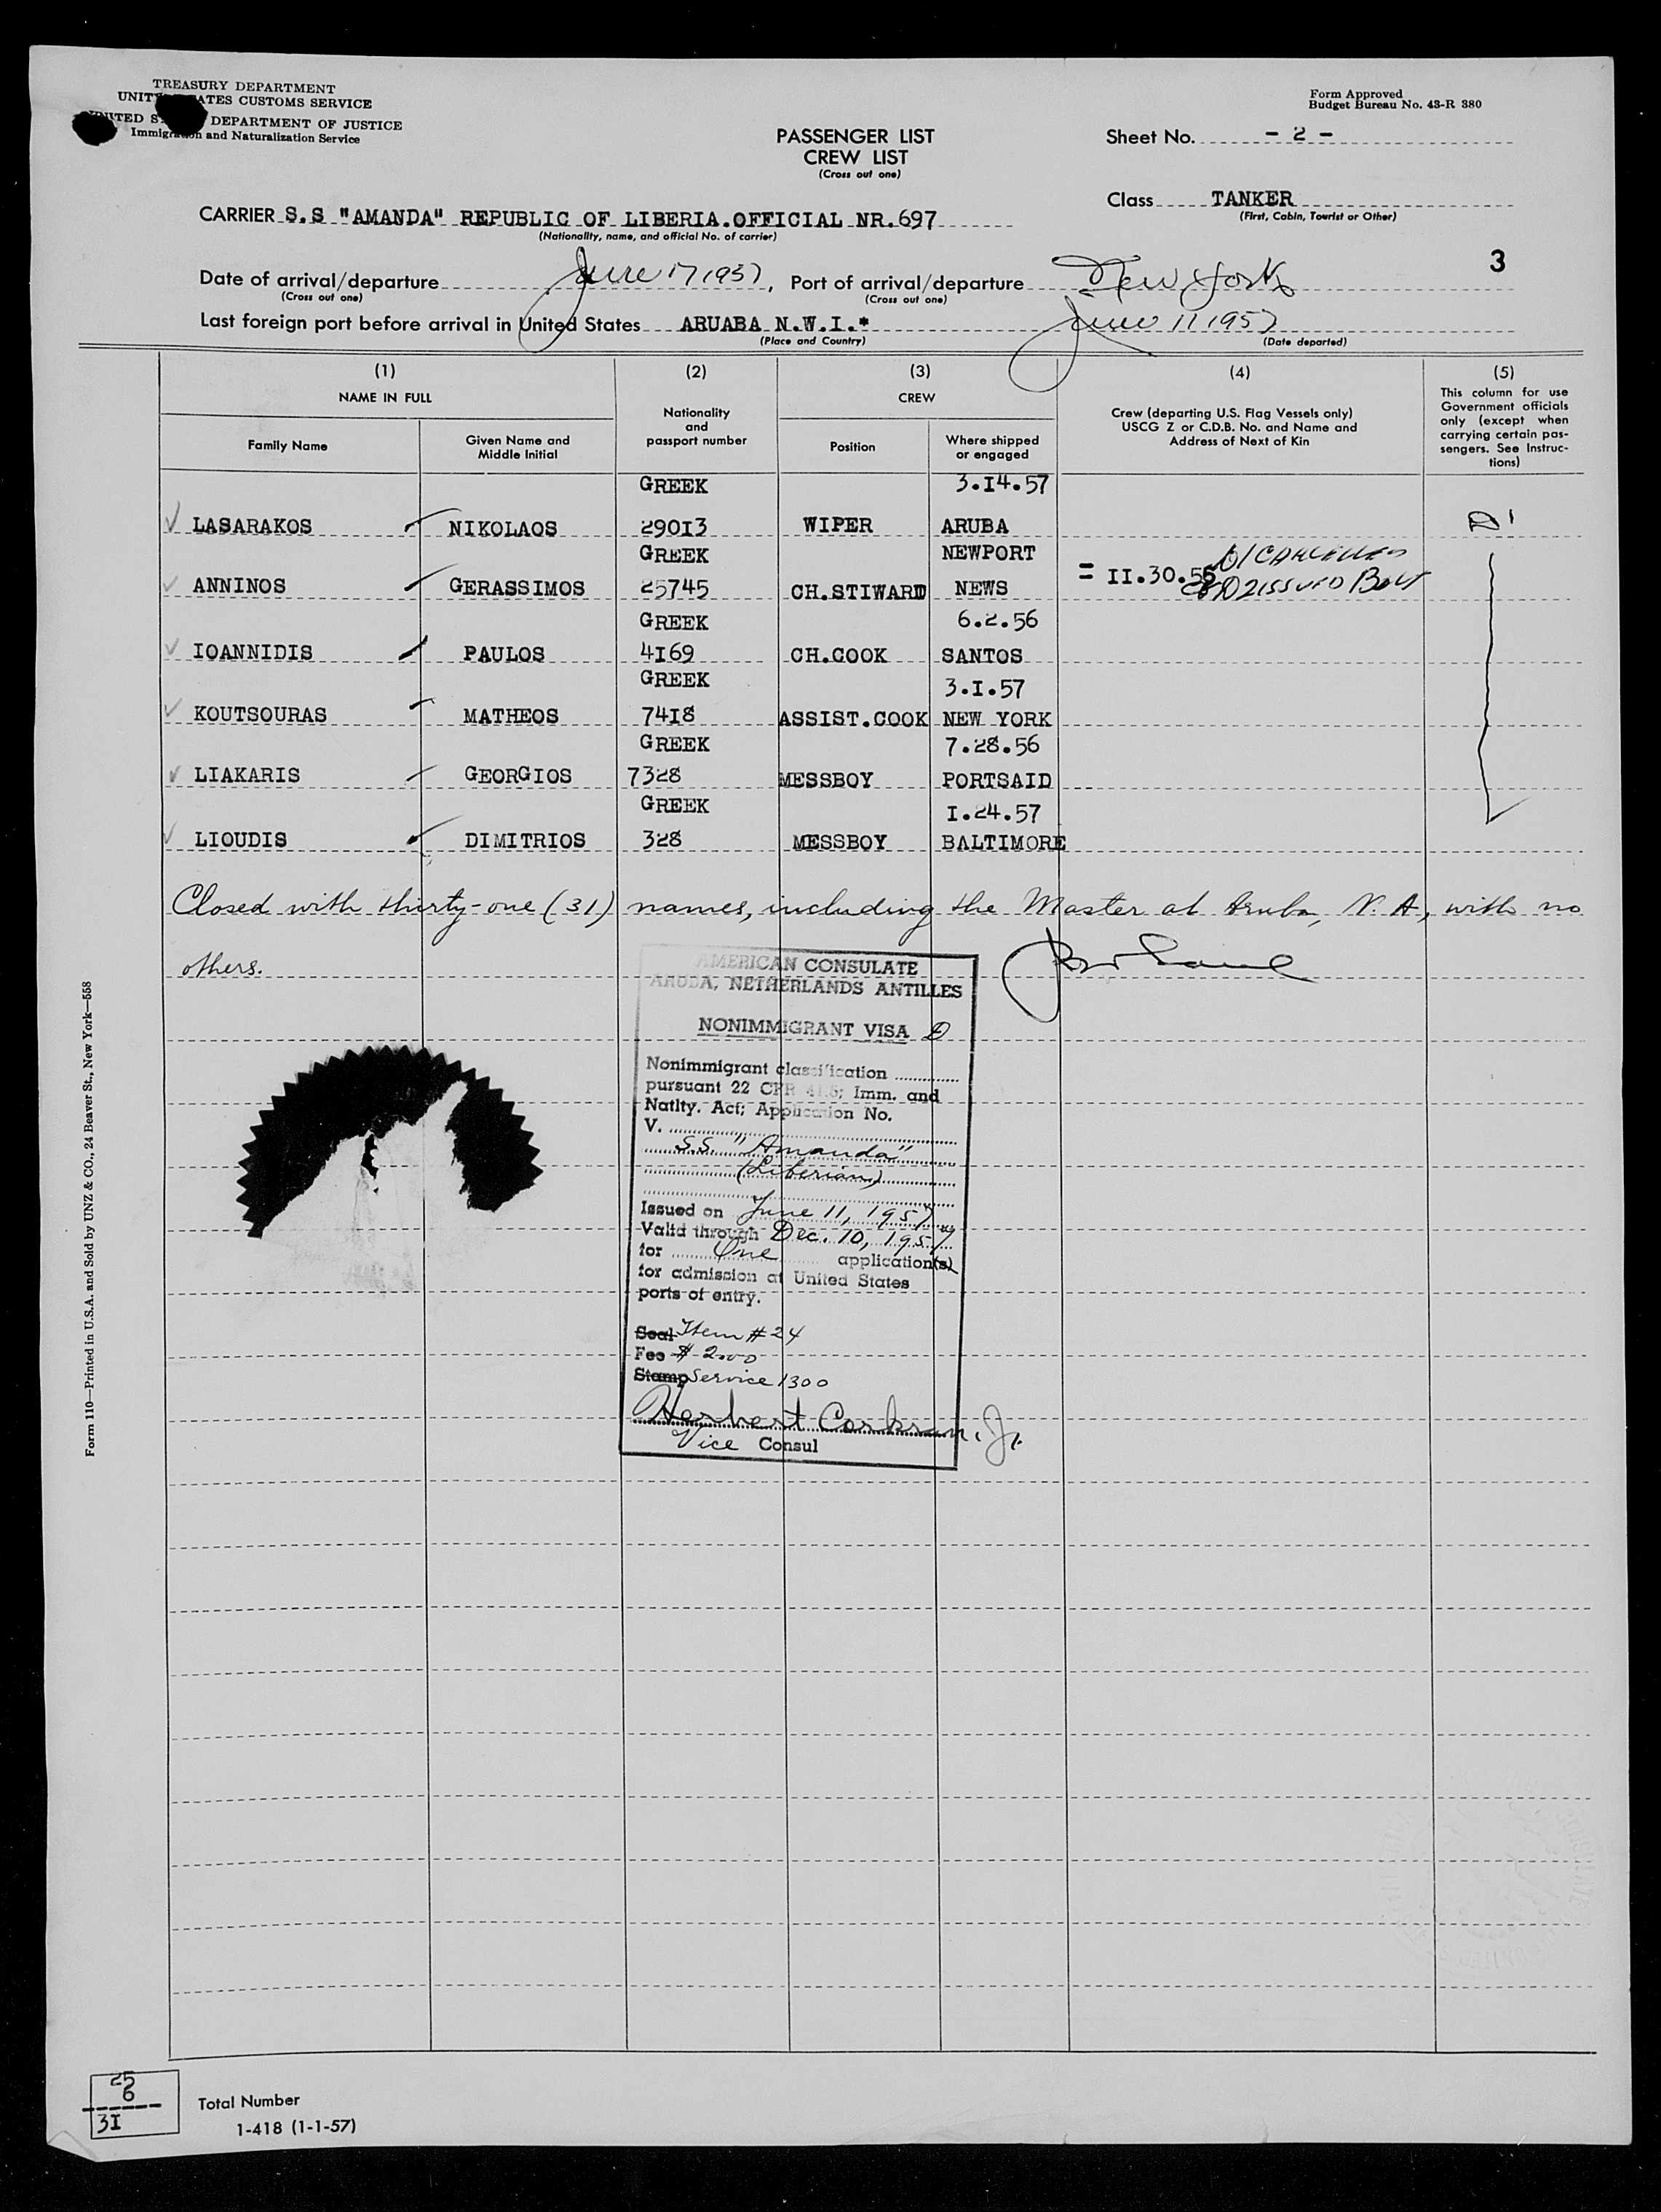 TREASURY DEPARTMENT
UNIT ATES CUSTOMS SERVICE
UNITED S DEPARTMENT OF JUSTICE
Immigration and Naturalization Service
Form Approved
Budget Bureau No. 43-R 380
PASSENGER LIST
CREW LIST
(Cross out one)
Sheet No. - 2 -
Class TANKER
(First, Cabin, Tourist or Other)
CARRIER S.S "AMANDA" REPUBLIC OF LIBERIA.OFFICIAL NR.697
(Nationality, name, and official No. of carrier)
3
Date of arrival/departure June 17 1957, Port of arrival/departure New York
(Cross out one) (Cross out one)
Last foreign port before arrival in United States ARUABA N.W.I.* June 11 1957
(Place and Country) (Date departed)
(1) (2) (3) (4) (5)
NAME IN FULL
Family Name
Given Name and
Middle Initial
Nationality
and
passport number
CREW
Position
Where shipped
or engaged
Crew (departing U.S. Flag Vessels only)
USCG Z or C.D.B. No. and Name and
Address of Next of Kin
This column for use
Government officials
only (except when
carrying certain pas-
sengers. See Instruc-
tions)
GREEK 3.I4.57
LASARAKOS NIKOLAOS 290I3 WIPER ARUBA
GREEK NEWPORT
ANNINOS GERASSIMOS 25745 CH.STIWARD NEWS = II.30.56
GREEK 6.2.56
IOANNIDIS PAULOS 4I69 CH.COOK SANTOS
GREEK 3.I.57
KOUTSOURAS MATHEOS 74I8 ASSIST.COOK NEW YORK
GREEK 7.28.56
LIAKARIS GEORGIOS 7328 MESSBOY PORTSAID
GREEK I.24.57
LIOUDIS DIMITRIOS 328 MESSBOY BALTIMORE
Closed with thirty-one (31) names, including the Master at Aruba, N. A, with no
others.
AMERICAN CONSULATE
ARUBA, NETHERLANDS ANTILLES
NONIMMIGRANT VISA D
Nonimmigrant classification
pursuant 22 CFR 41.5; Imm. and
Natlty. Act; Application No.
V.
S.S. "Amanda"
(Liberian)
Issued on June 11, 1957
Valid through Dec. 10, 1957
for One application(s)
for admission at United States
ports of entry.
Seal Item #24
Fee $ 2.00
Stamp Service 1300
Herbert Corkran, Jr.
Vice Consul
Form 110—Printed in U.S.A. and Sold by UNZ & CO., 24 Beaver St., New York—558
25
6
3I
Total Number
1-418 (1-1-57)